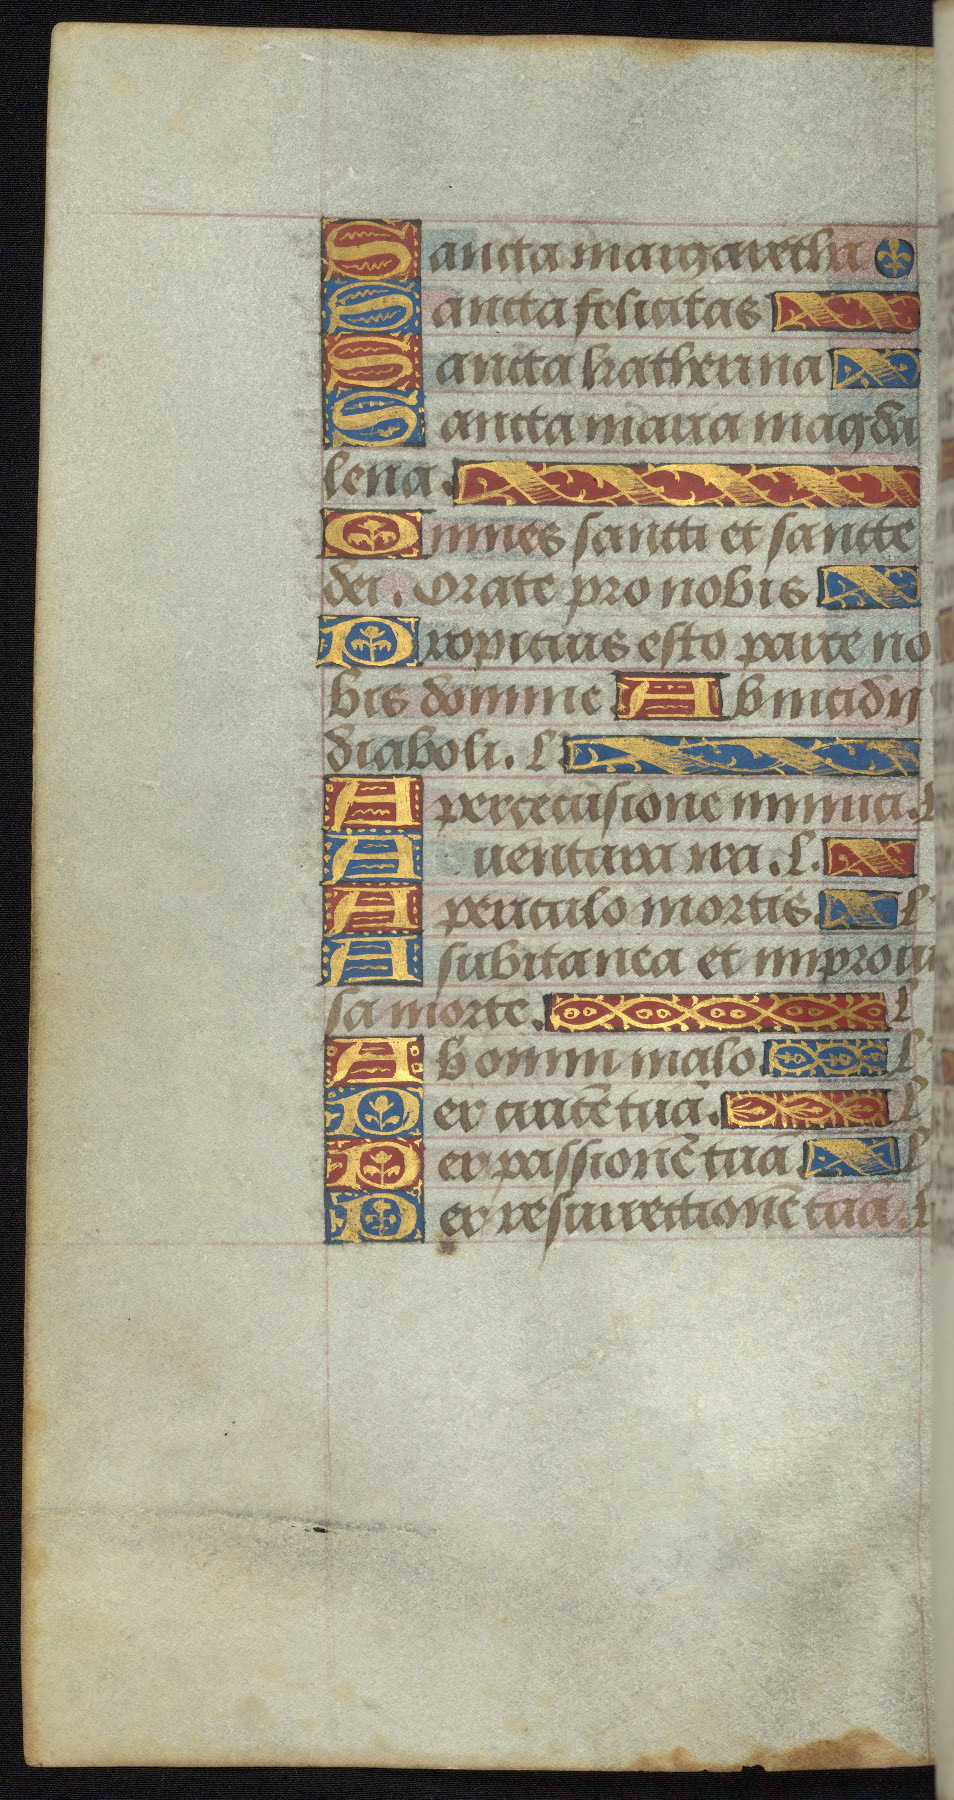 Sancta margaretha
Sancta felicitas
Sancta katherina
Sancta maria magda
lena.
Omnes sancti et sancte
dei. Orate pro nobis
Propicius esto parce no
bis domine Ab incidijs
diaboli. L
A persecusione inimici. L
A ventura ira. L.
A periculo mortis. L
A subitanea et improui
sa morte. L
Ab omni malo L
Per crucē tuā. L
Per passionē tuā L
Per resurrectionē tuā. L